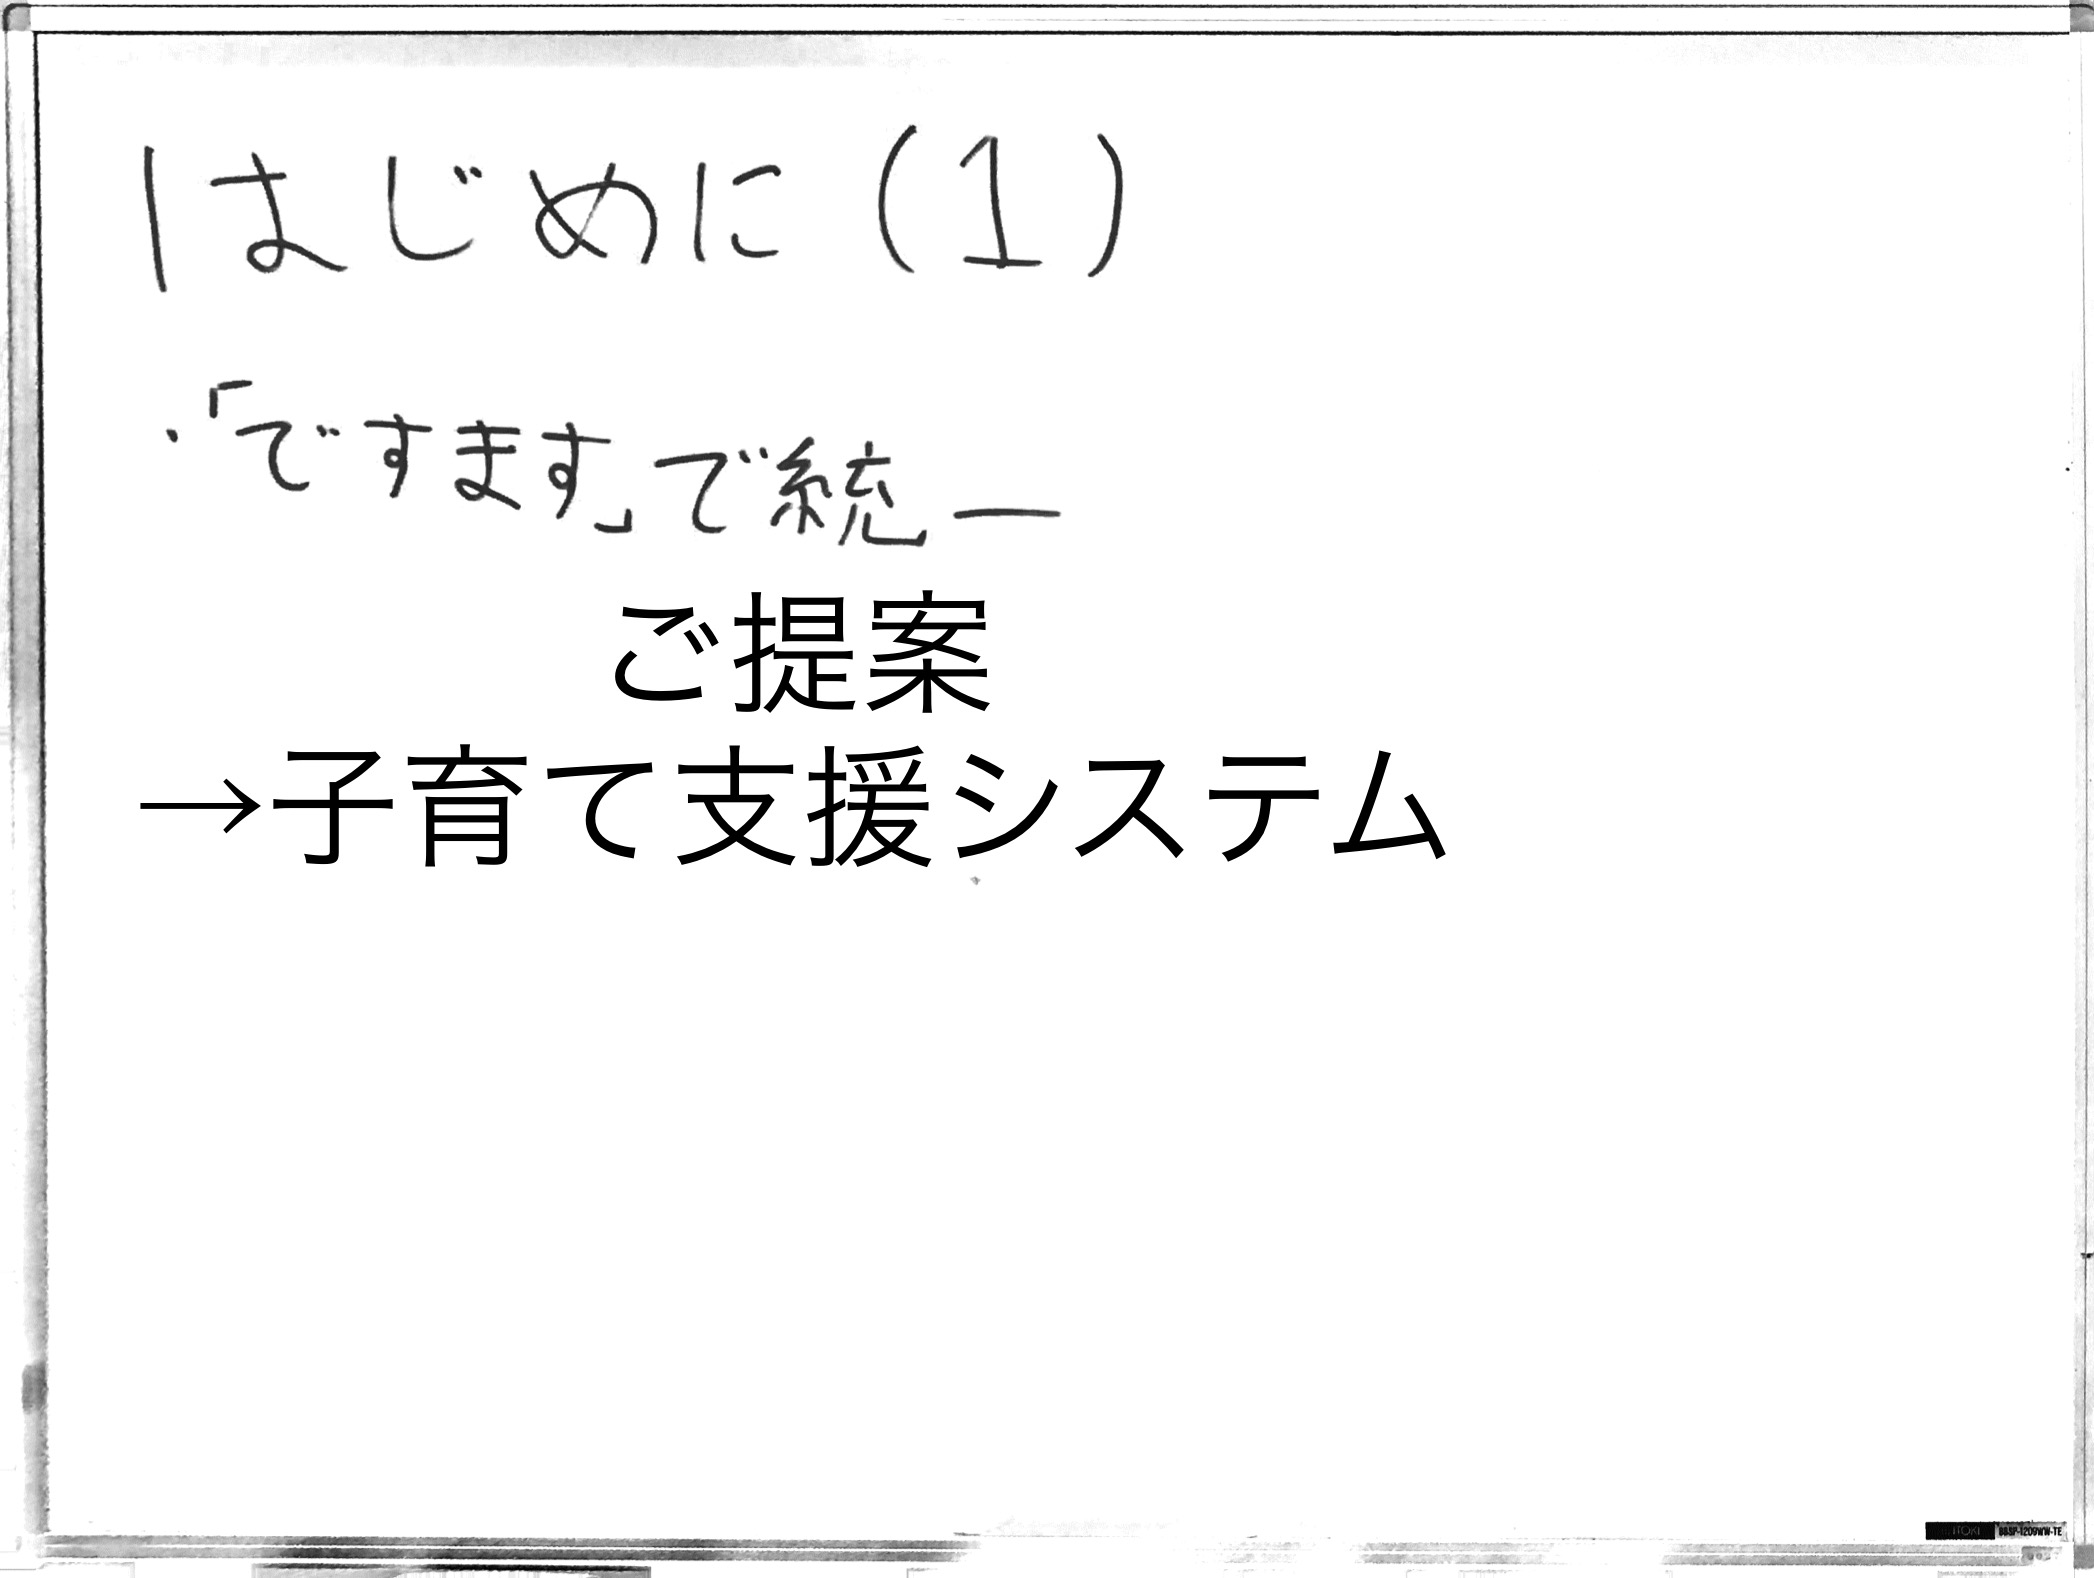 はじめに(1)
・「ですます」で統一
ご提案
→子育て支援システム
ITOKI BBSP-1209WW-TE